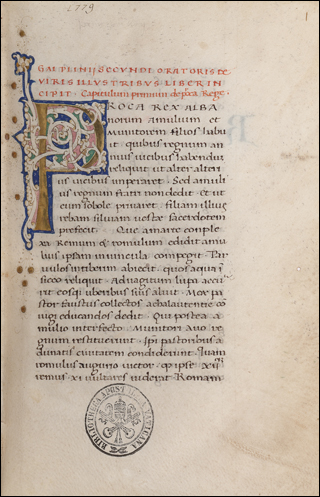 1
GAI PLINII SECUNDI ORATORIS DE
VIRIS ILLUSTRIBUS LIBER IN
CIPIT. Capitulum primum de p̃ca Rege
PROCA REX ALBA
norum amulium et
Numitorem filios habu
it quibus regnum an
nuis vicibus habendum
reliquit ut alter alteri
us vicibus imperaret. Sed amuli
us regnum fratri non dedit et ut
eum sobole privaret filiam illius
rheam silviam vestae sacerdotem
prefecit. Que a marte comple
xa Remum & romulum edidit amu
lius ipsam in vincula compegit. Par
vulos in tiberim abiecit quos aqua i
sicco reliquit. Ad vagitum lupa accu
rit eosq; uberibus suis aluit. Mox pa
stor faustus collectos acca laurentie con
iugi educandos dedit. Qui postea a
mulio interfecto Numitori avo re
gnum restituerunt. Ipsi pastoribus a
dunatis civitatem condiderunt. Quam
romulus augurio victor qp ipse xii
remus vi vultures viderat Romam
BIBLIOTHECA APOSTOLICA VATICANA